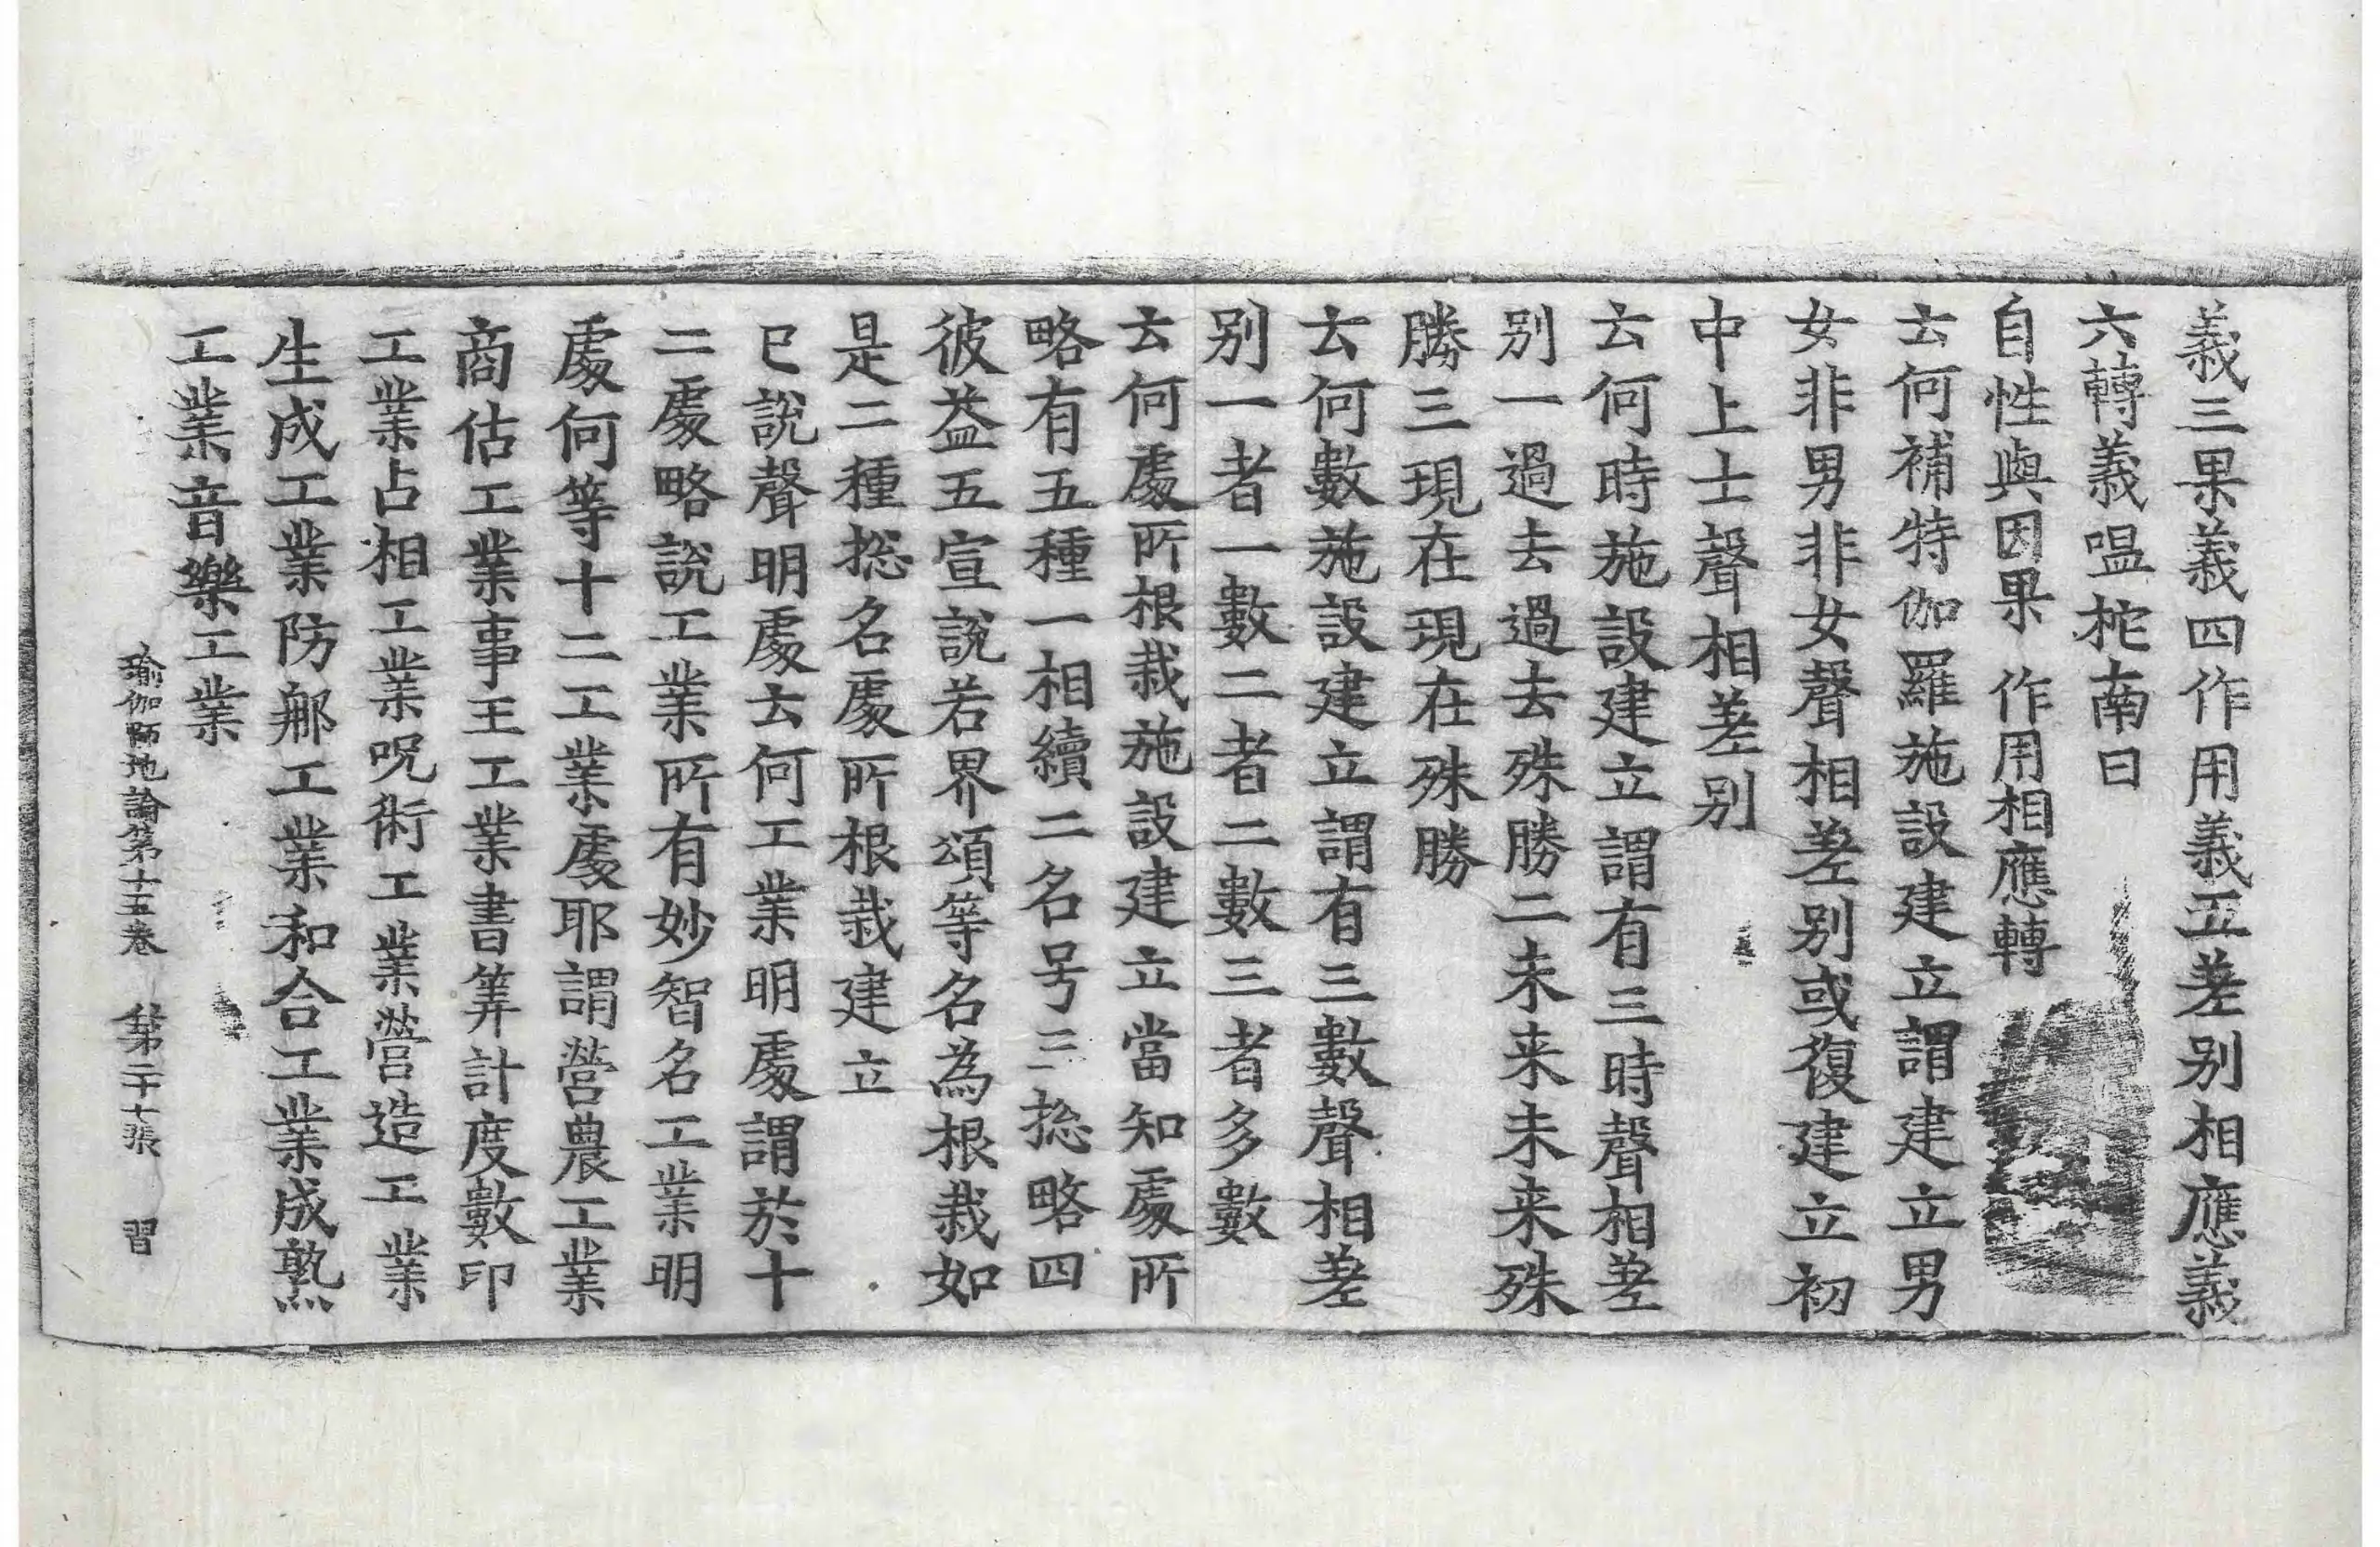 義三果義四作用義五差别相應義
六轉義嗢柁南曰
自性與因果 作用相應轉
云何補特伽羅施設建立謂建立男
女非男非女聲相差别或復建立初
中上士聲相差别
云何時施設建立謂有三時聲相差
别一過去過去殊勝二未来未来殊
勝三現在現在殊勝
云何數施設建立謂有三數聲相差
别一者一數二者二數三者多數
云何處所根栽施設建立當知處所
略有五種一相續二名号三揔略四
彼益五宣說若界頌等名為根栽如
是二種揔名處所根栽建立
已說聲明處云何工業明處謂於十
二處略說工業所有妙智名工業明
處何等十二工業處耶謂營農工業
商估工業事王工業書筭計度數印
工業占相工業呪術工業營造工業
生成工業防郍工業和合工業成熟
工業音樂工業
瑜伽師地論第十五卷 第二十七張 習